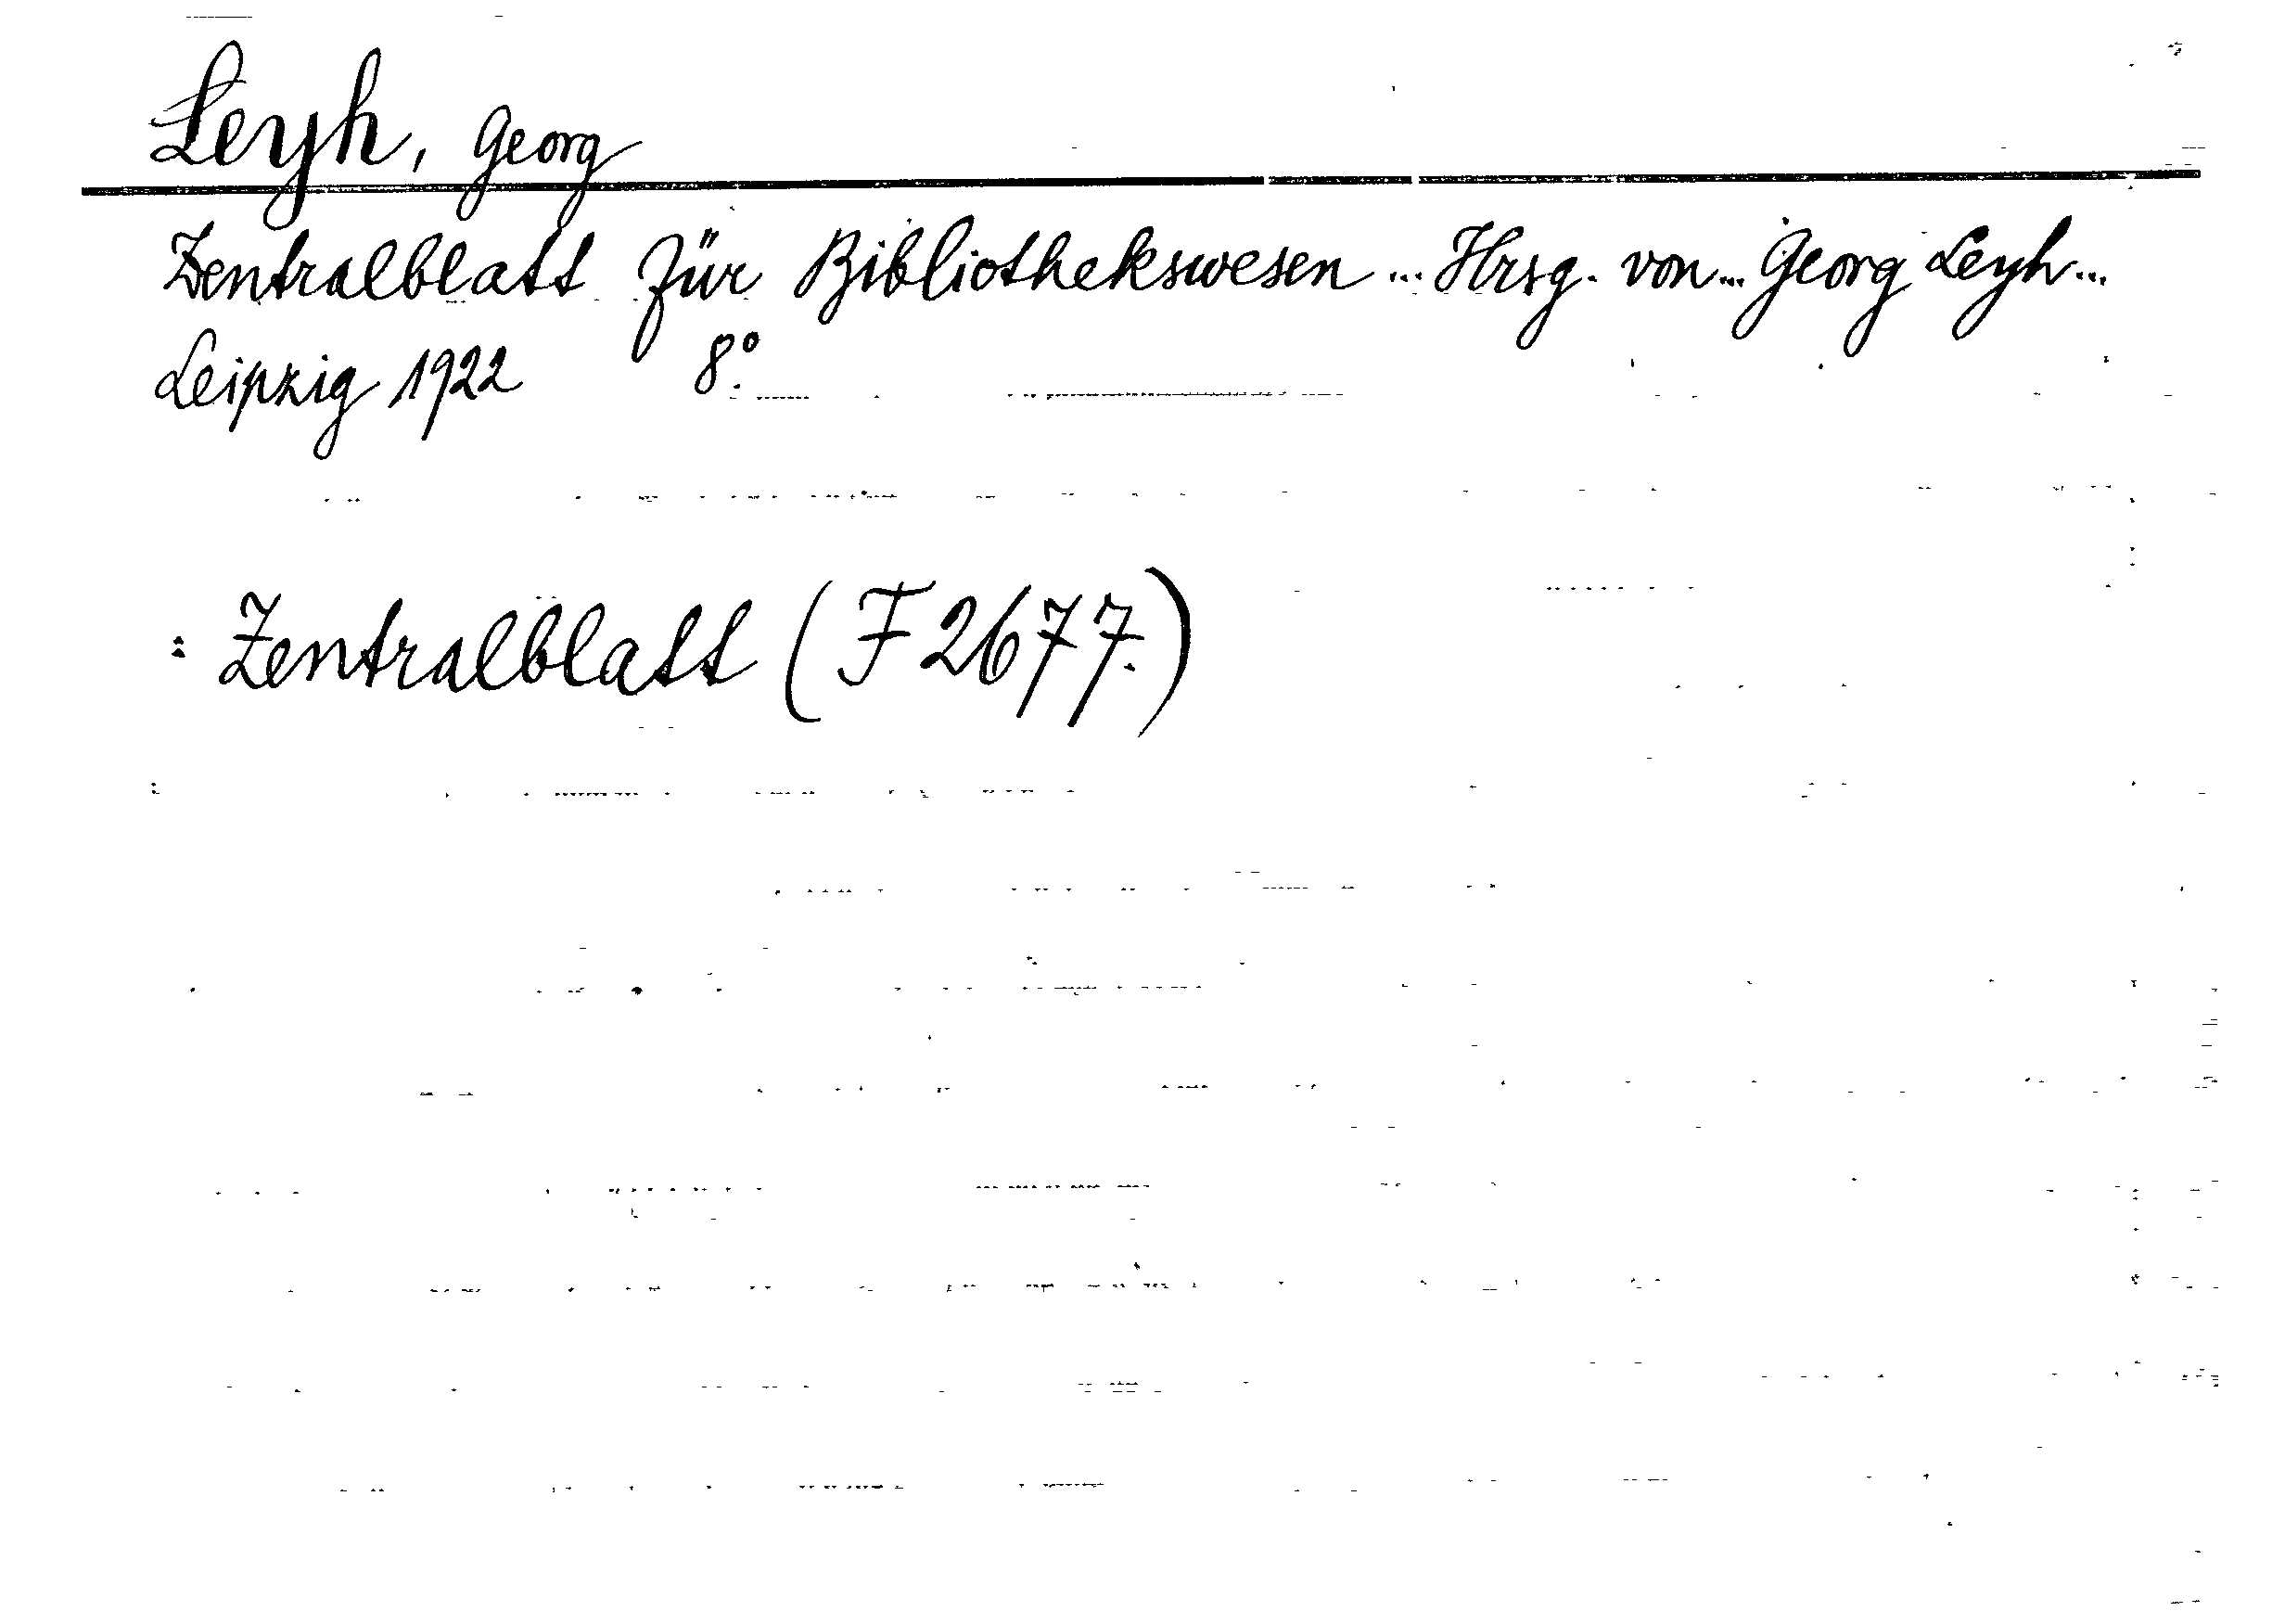 Leyh, Georg
Zentralblatt für Bibliothekswesen ... Hrsg. von ... Georg Leyh ...
Leipzig 1922 8°.
: Zentralblatt (F 2677.)